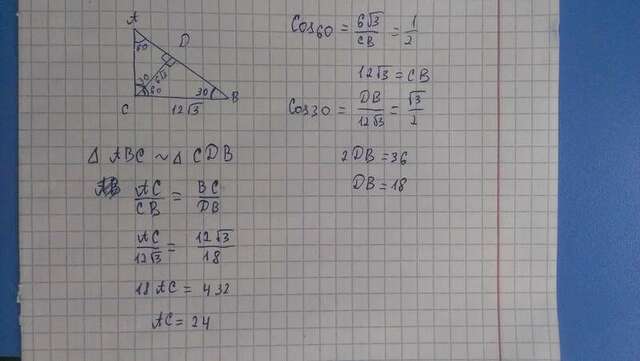 A
D
60
30
6√3
60
30
C
12√3
B
△ ABC ~ △ CDB
AC/CB = BC/DB
AC/12√3 = 12√3/18
18 AC = 432
AC = 24
Cos60 = 6√3/CB = 1/2
12√3 = CB
Cos30 = DB/12√3 = √3/2
2DB = 36
DB = 18